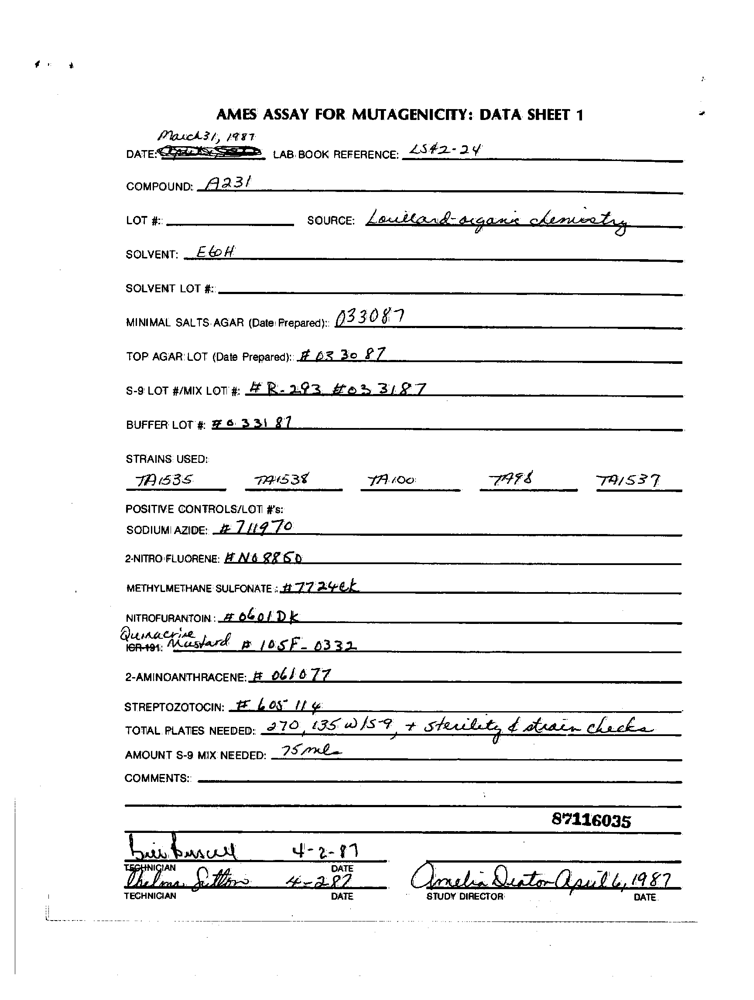 AMES ASSAY FOR MUTAGENICITY: DATA SHEET 1
March 31, 1987
DATE: LAB BOOK REFERENCE: LS#2-24
COMPOUND: A231
LOT #: SOURCE: Lorillard-organic chemistry
SOLVENT: EtOH
SOLVENT LOT #:
MINIMAL SALTS AGAR (Date Prepared): 033087
TOP AGAR LOT (Date Prepared): # 03 30 87
S-9 LOT #/MIX LOT #: # R-293 #033187
BUFFER LOT #: # 033187
STRAINS USED:
TA1535 TA1538 TA100 TA98 TA1537
POSITIVE CONTROLS/LOT #'s:
SODIUM AZIDE: # 711970
2-NITRO FLUORENE: # N08850
METHYLMETHANE SULFONATE: # 7724ek
NITROFURANTOIN: # 0601DK
Quinacrine
ICR-191: Mustard # 105F-0332
2-AMINOANTHRACENE: # 061077
STREPTOZOTOCIN: # 605 114
TOTAL PLATES NEEDED: 270, 135 w/S9, + sterility & strain checks
AMOUNT S-9 MIX NEEDED: 75 mls
COMMENTS:
87116035
4-2-87
TECHNICIAN DATE
Thelma Sutton 4-2-87 Amelia Deaton April 6, 1987
TECHNICIAN DATE STUDY DIRECTOR DATE